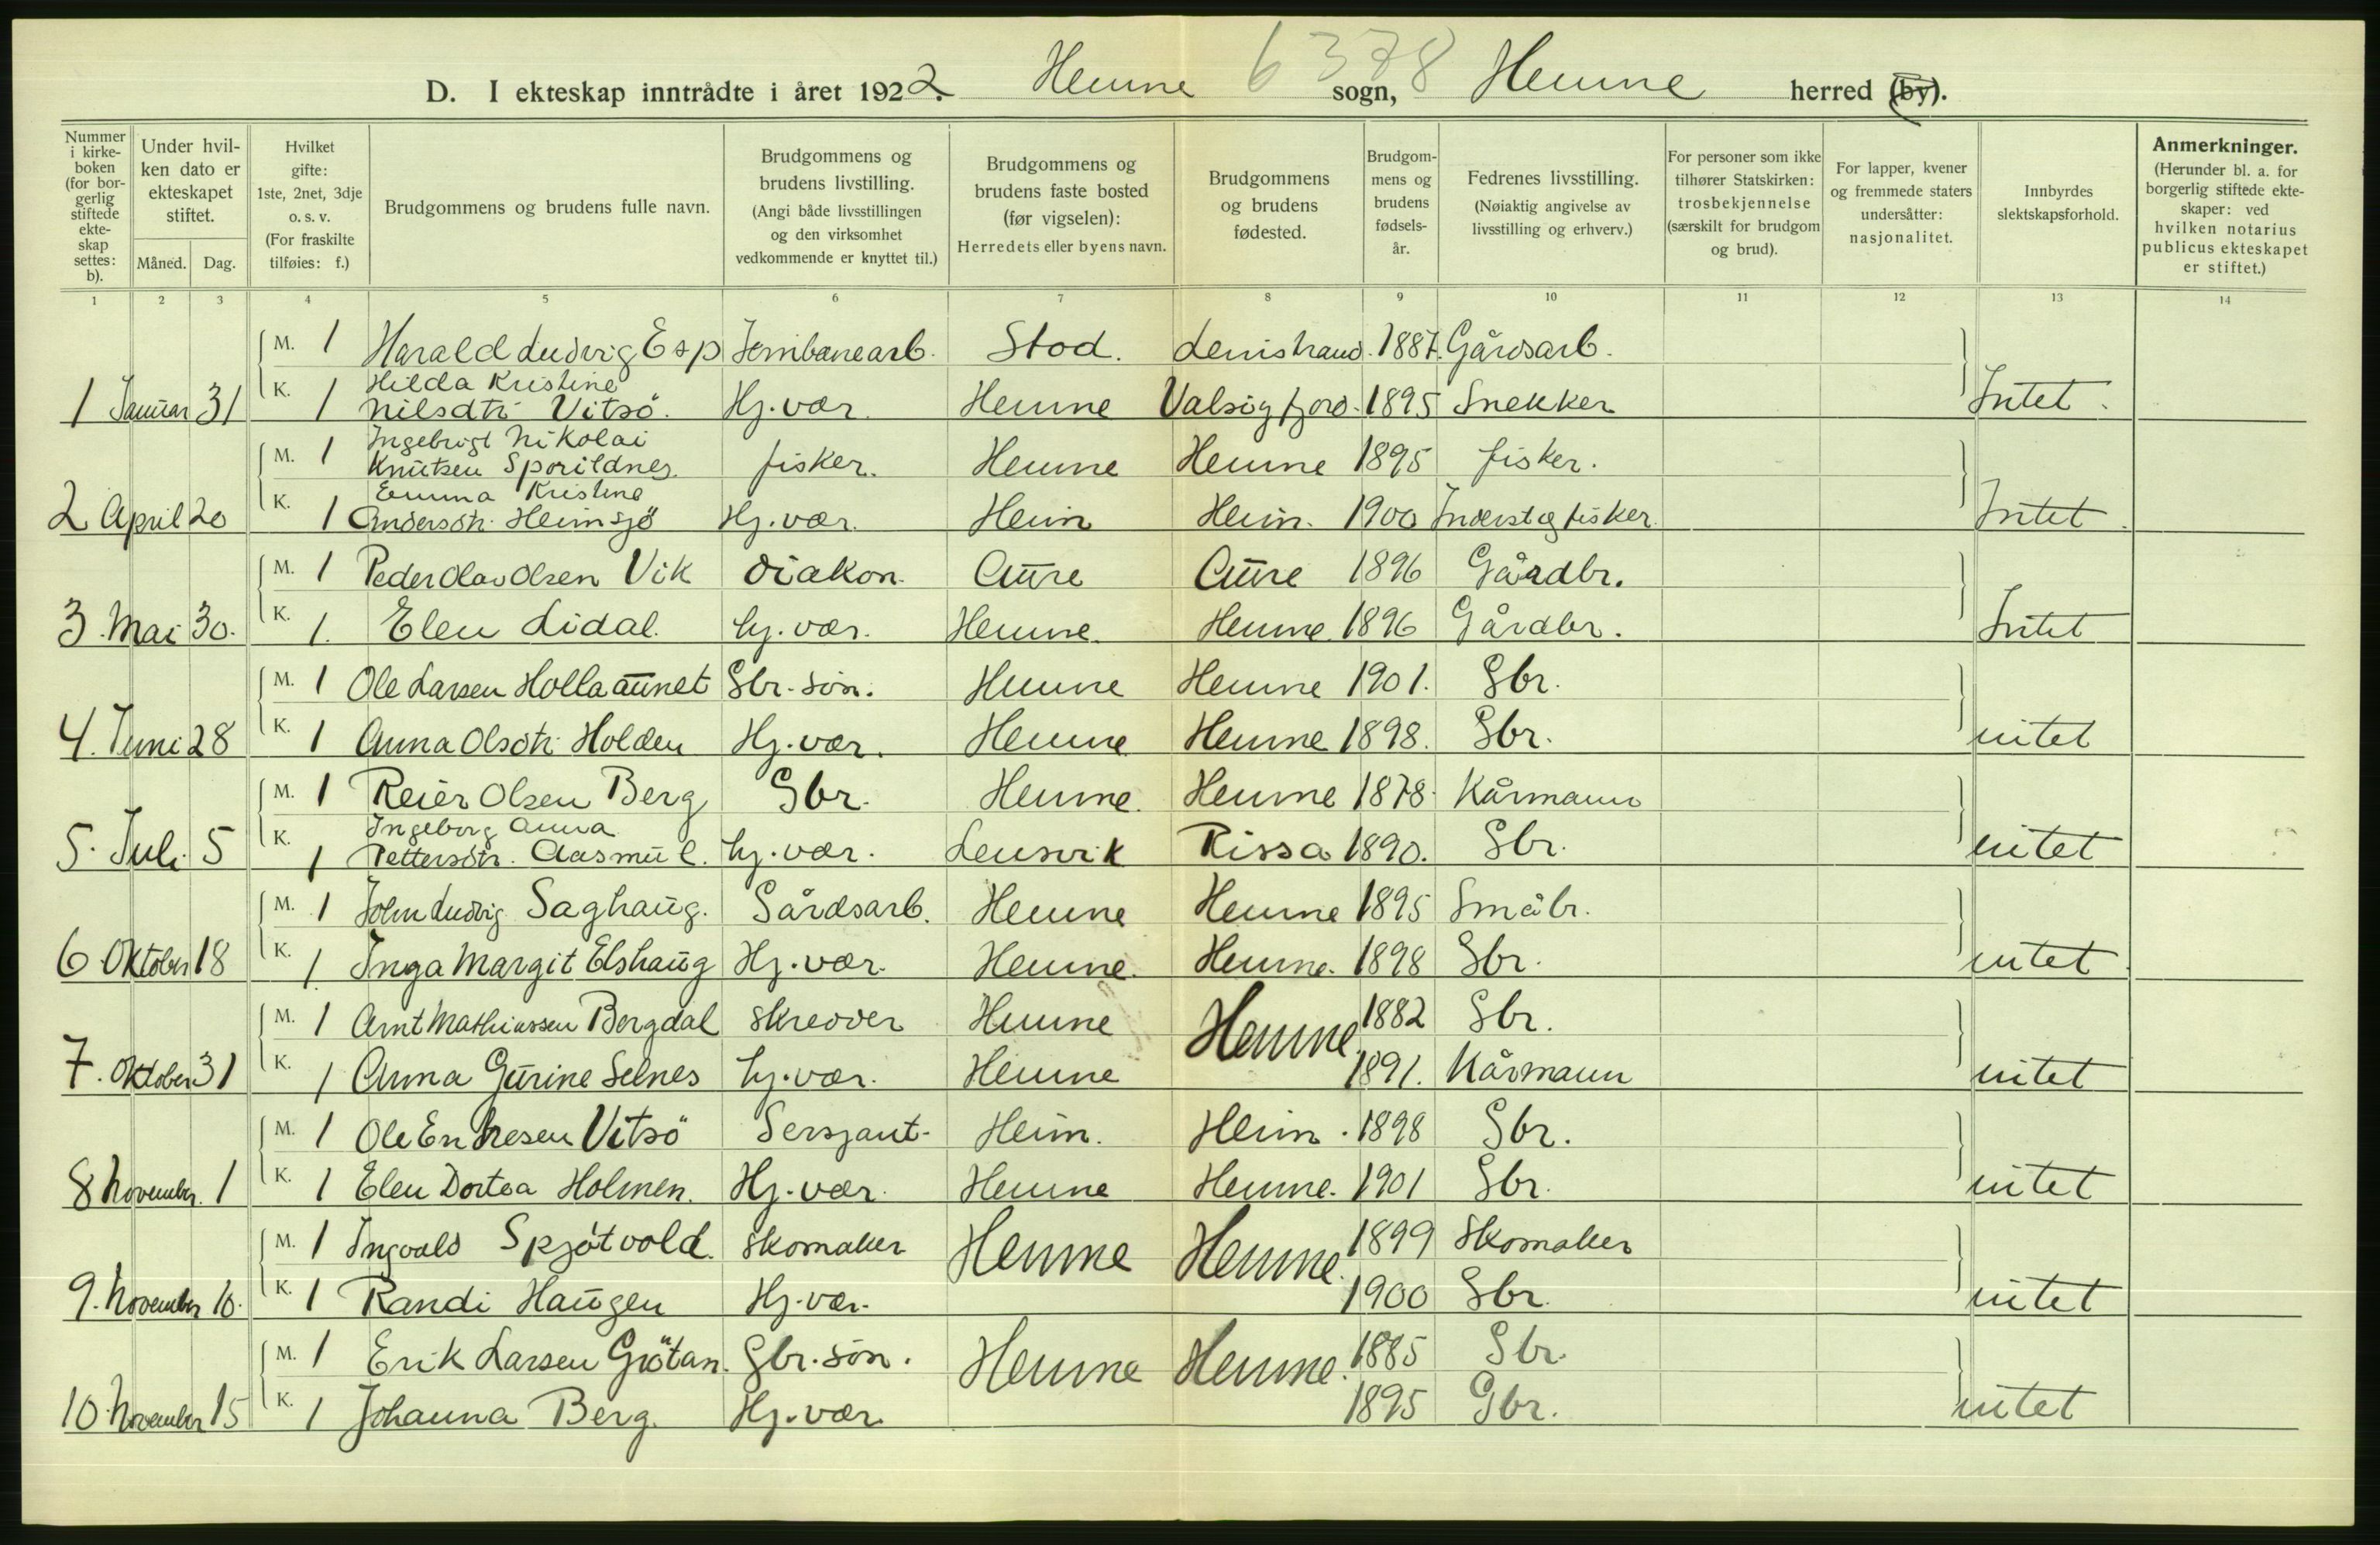 6378
D. I ekteskap inntrådte i året 1922. Hemne sogn, Hemne herred (by).
Nummer i kirkeboken (for borgerlig stiftede ekteskap settes: b).
Under hvilken dato er ekteskapet stiftet.
Måned. Dag.
Hvilket gifte: 1ste, 2net, 3dje o. s. v. (For fraskilte tilføies: f.)
Brudgommens og brudens fulle navn.
Brudgommens og brudens livstilling. (Angi både livsstillingen og den virksomhet vedkommende er knyttet til.)
Brudgommens og brudens faste bosted (før vigselen): Herredets eller byens navn.
Brudgommens og brudens fødested.
Brudgommens og brudens fødselsår.
Fedrenes livsstilling. (Nøiaktig angivelse av livsstilling og erhverv.)
For personer som ikke tilhører Statskirken: trosbekjennelse (særskilt for brudgom og brud).
For lapper, kvener og fremmede staters undersåtter: nasjonalitet.
Innbyrdes slektskapsforhold.
Anmerkninger. (Herunder bl. a. for borgerlig stiftede ekteskaper: ved hvilken notarius publicus ekteskapet er stiftet.)
1 2 3 4 5 6 7 8 9 10 11 12 13 14
M. 1 Harald Ludvig Esp Jernbanearb. Stod. 1887. Gårdsarb.
1 Januar 31 K. 1 Hilda Kristine Nilsdtr Vitsö. Hj. vær. Hemne Valsøgfjord. 1895 Snekker Intet.
M. 1 Ingebrigt Nikolai Knutsen Sporildnes. fisker. Hemne Hemne 1895 fisker.
2 April 20 K. 1 Emma Kristine Andersdtr. Heimsjö Hj. vær. Heim Heim. 1900 Inderst og fisker. Intet.
M. 1 Peder Olav Olsen Vik diakon. Aure Aure 1896 Gårdbr.
3. Mai 30. K. 1. Elen Lidal. hj. vær. Hemne. Hemne. 1896 Gårdbr. Intet
M. 1 Ole Larsen Hollaaunet Gbr. sön. Hemne Hemne 1901. Gbr.
4. Juni 28 K. 1 Anna Olsdtr Holden Hj. vær. Hemne Hemne 1898. Gbr. intet
M. 1 Reier Olsen Berg Gbr. Hemne. Hemne 1878. Kårmann
5. Juli. 5 K. 1 Ingeborg Anna Pettersdtr. Aasmul. hj. vær. Lensvik Rissa 1890. Gbr. intet
M. 1 John Ludvig Saghaug. Gårdsarb. Hemne Hemne 1895 Småbr.
6. Oktober 18 K. 1 Inga Margit Elshaug Hj. vær. Hemne. Hemne. 1898 Gbr. intet.
M. 1 Arnt Mathiassen Bergdal skredder Hemne Hemne. 1882 Gbr.
7. Oktober 31 K. 1 Anna Gurine Selnes hj. vær. Hemne 1891. Kårmann intet
M. 1 Ole Endresen Vitsö Sersjant. Heim. Heim. 1898 Gbr.
8 November. 1 K. 1 Elen Dortea Holmen. Hj. vær. Hemne Hemne. 1901 Gbr. intet
M. 1 Ingvald Spjötvold. skomaker Hemne Hemne. 1899 Skomaker
9. November 10. K. 1 Randi Haugen Hj. vær. 1900 Gbr. intet
M. 1 Erik Larsen Grötan. Gbr. sön. Hemne Hemne. 1885 Gbr.
10. November 15 K. 1 Johanna Berg. Hj. vær. 1895 Gbr. intet